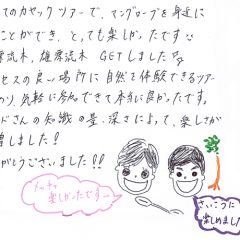 てのカヤックツアーで、マングローブを身近に
ことができ、とっても楽しかったです
漂流木、雄漂流木 GETしました
セスの良い場所に自然を体験できるツアー
のり、気軽に参加できて本当に良かったです。
ドさんの知識の量、深さによって、楽しさが
増しました!
がとうございました!!
メッチャ
楽しかったですー
さいこうに
楽しめました